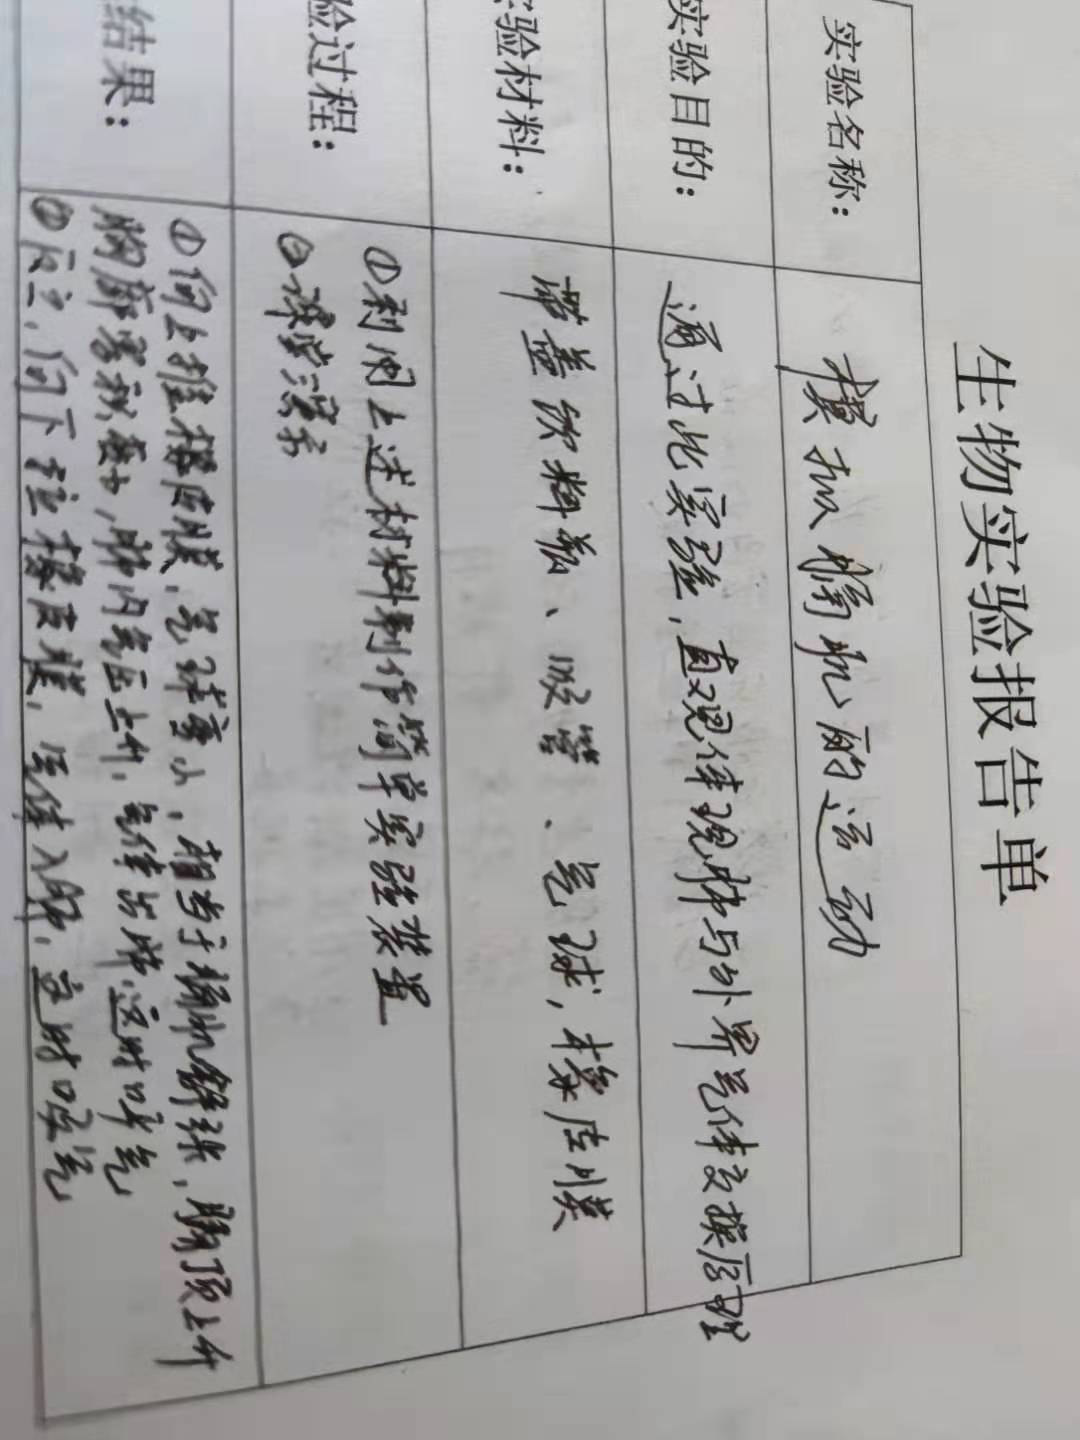 生物实验报告单
实验名称：
模拟膈肌的运动
实验目的：
通过此实验，直观体现肺与外界气体交换原理
实验材料：
带盖饮料瓶、吸管、气球，橡皮膜
验过程：
①利用上述材料制作简单实验装置
②课堂演示
结果：
①向上推橡皮膜，气球变小，相当于膈肌舒张，膈顶上升
胸廓容积变小，肺内气压上升，气体出肺，这时呼气
②反之，向下拉橡皮膜，气体入肺，这时吸气